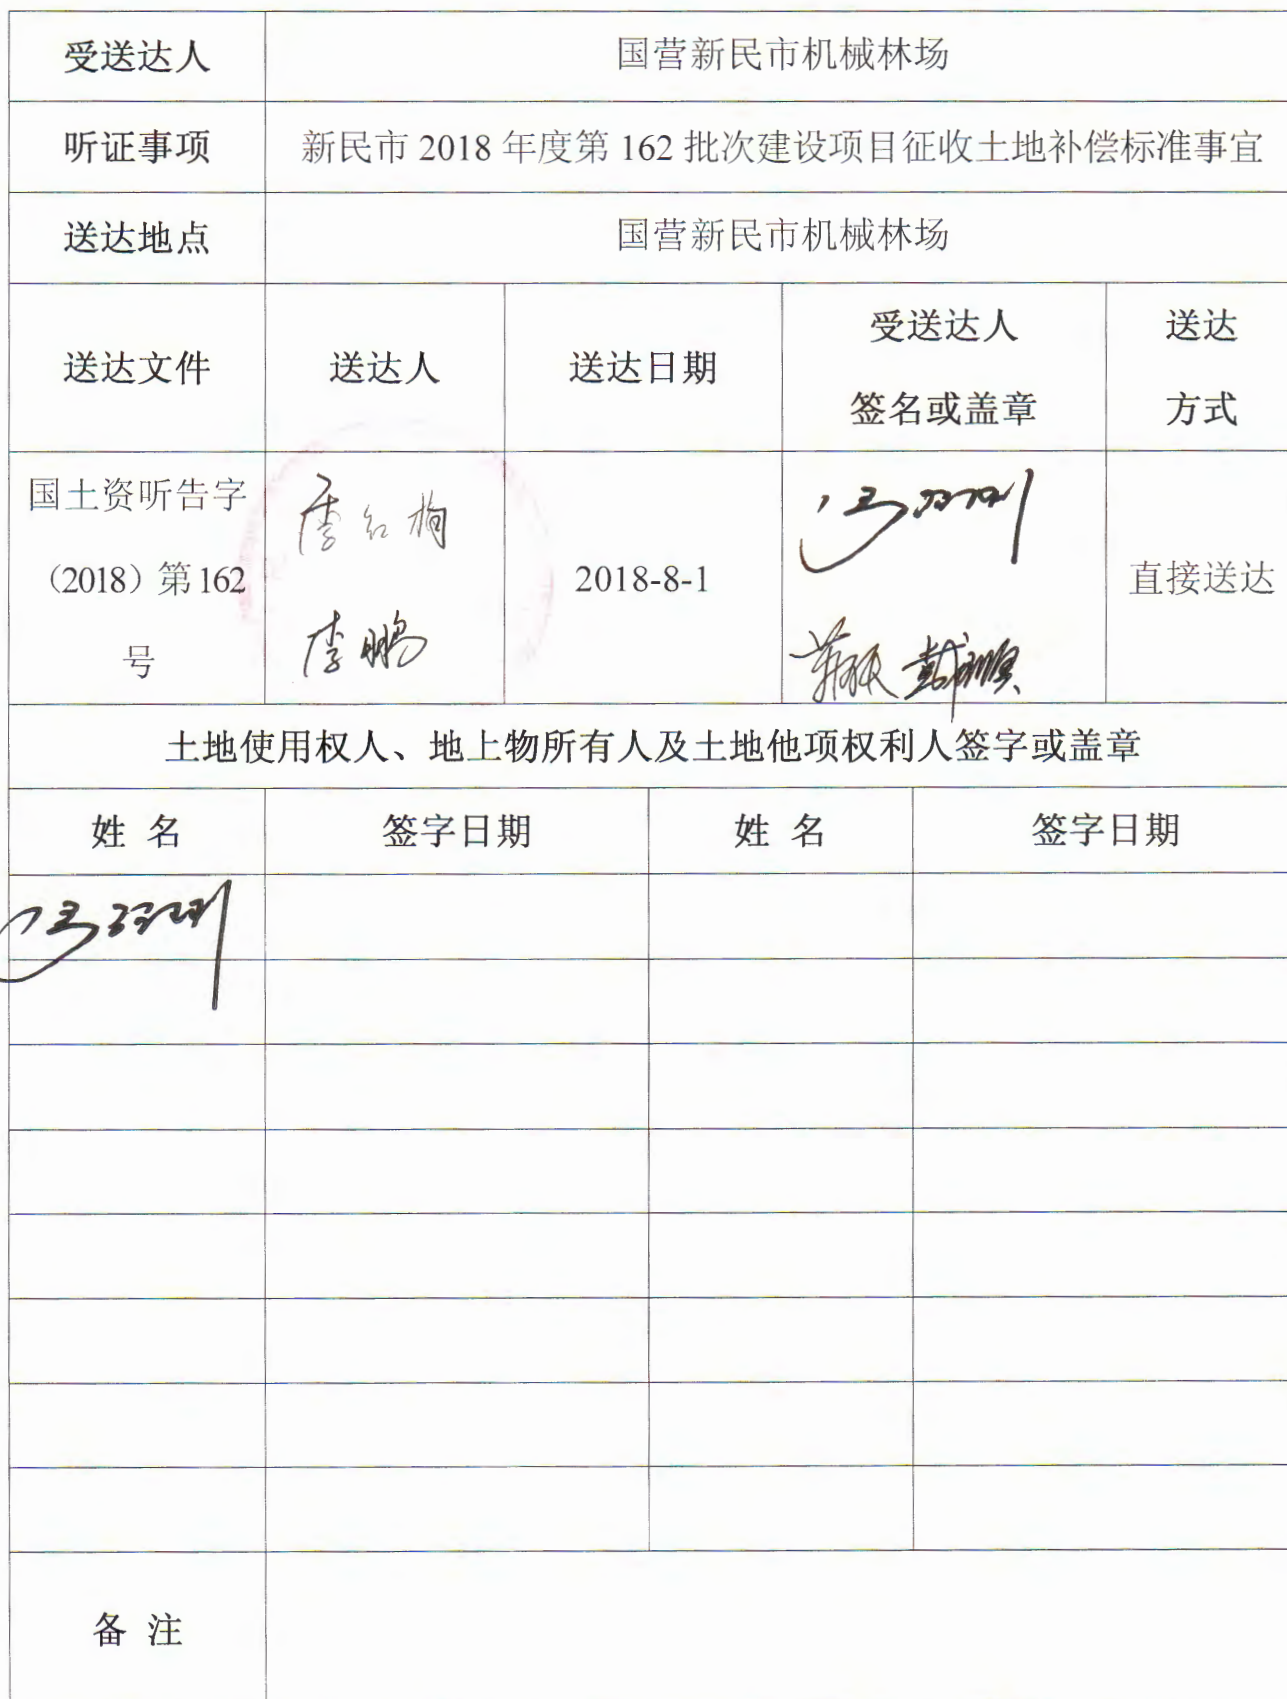 受送达人 国营新民市机械林场
听证事项 新民市 2018 年度第 162 批次建设项目征收土地补偿标准事宜
送达地点 国营新民市机械林场
送达文件 送达人 送达日期 受送达人 送达
签名或盖章 方式
国土资听告字
（2018）第 162 2018-8-1 直接送达
号
李鹏
土地使用权人、地上物所有人及土地他项权利人签字或盖章
姓 名 签字日期 姓 名 签字日期
备 注